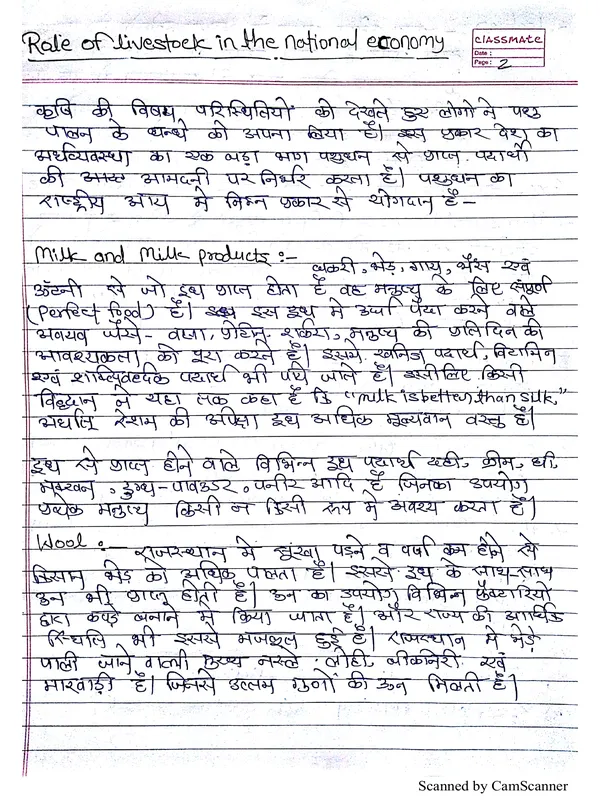 Role of livestock in the national economy
CLASSMATE
Date :
Page : 2
कृषि की विषम परिस्थितियों को देखते हुए लोगो ने पशु
पालन के धन्धे को अपना लिया है। इस प्रकार देश का
अर्थव्यवस्था का एक बड़ा भाग पशुधन से प्राप्त पदार्थो
की आमदनी पर निर्भर करता है। पशुधन का
राष्ट्रीय आय मे निम्न प्रकार से योगदान है -
Milk and Milk products :-
बकरी, भेड़, गाय, भैंस एवं
ऊँटनी से जो दूध प्राप्त होता है वह मनुष्य के लिए संपूर्ण
(Perfect food) है। इस दूध मे उर्जा पैदा करने वाले
अवयव जैसे - वसा, प्रोटिन, शर्करा, मनुष्य की प्रतिदिन की
आवश्यकता को पुरा करते है। इसमे खनिज पदार्थ, विटामिन
एवं पदार्थ भी पाये जाते है। इसीलिए किसी
विद्वान ने यहा तक कहा है कि "milk is better than silk,"
अर्थात रेशम की अपेक्षा दूध अधिक मूल्यवान वस्तु है।
दूध से प्राप्त होने वाले विभिन्न दूध पदार्थ दही, क्रीम, घी,
मक्खन, दुग्ध-पावडर, पनीर आदि है जिनका उपयोग
प्रत्येक मनुष्य किसी न किसी रूप मे अवश्य करता है।
Wool :- राजस्थान मे सूखा पड़ने व वर्षा कम होने से
किसान भेड़ को अधिक पालता है। इससे दूध के साथ-साथ
ऊन भी प्राप्त होती है। ऊन का उपयोग विभिन्न फैक्टारियो
द्वारा कपड़े बनाने मे किया जाता है। और राज्य की आर्थिक
स्थिति भी इससे मजबूत हुई है। राजस्थान मे भेड़े
पाली जाने वाली मुख्य नस्ले लोही, बीकानेरी एवं
मारवाड़ी है। जिनसे उत्तम गुणों की ऊन मिलती है।
Scanned by CamScanner